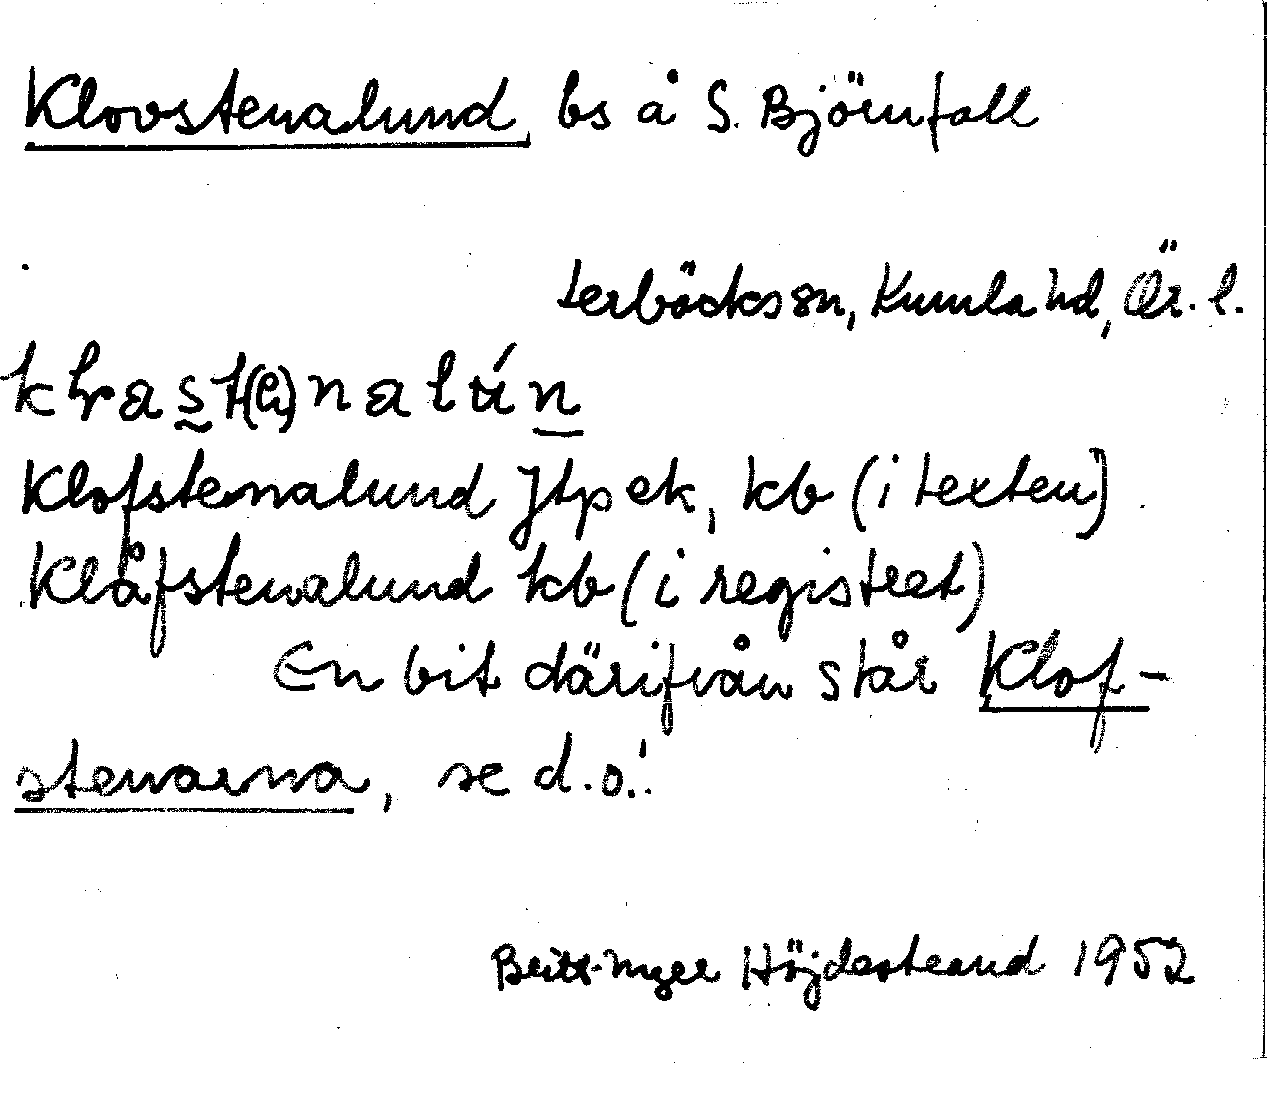 Klovstenalund bs å S. Björnfall
terböcks sn, Kumla hd, Ör. l.
Klofstenalund Jtp ek, kb (i texten)
Klåfstenalund kb (i registret)
En bit därifrån står Klof-
stenarna, se d.o.!
Britt-Inger Höjdestrand 1952